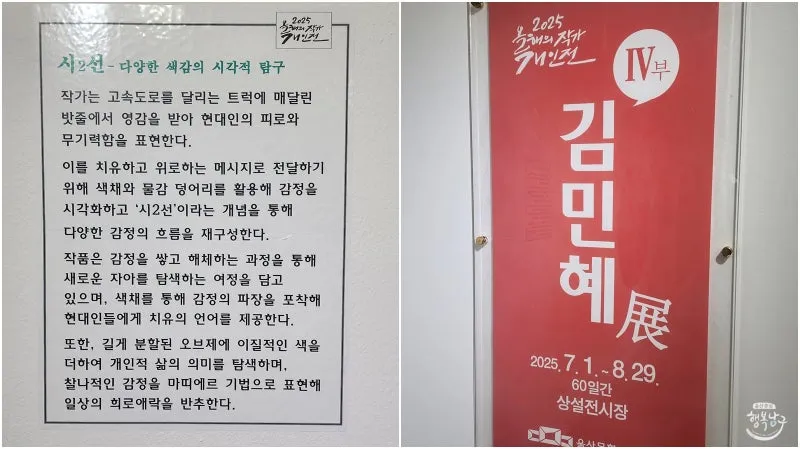 2025
올해의 작가
개인전
시2선 - 다양한 색감의 시각적 탐구
작가는 고속도로를 달리는 트럭에 매달린
밧줄에서 영감을 받아 현대인의 피로와
무기력함을 표현한다.
이를 치유하고 위로하는 메시지로 전달하기
위해 색채와 물감 덩어리를 활용해 감정을
시각화하고 ‘시2선’이라는 개념을 통해
다양한 감정의 흐름을 재구성한다.
작품은 감정을 쌓고 해체하는 과정을 통해
새로운 자아를 탐색하는 여정을 담고
있으며, 색채를 통해 감정의 파장을 포착해
현대인들에게 치유의 언어를 제공한다.
또한, 길게 분할된 오브제에 이질적인 색을
더하여 개인적 삶의 의미를 탐색하며,
찰나적인 감정을 마띠에르 기법으로 표현해
일상의 희로애락을 반추한다.
2025
올해의 작가
개인전
IV부
김민혜
展
2025. 7. 1. ~ 8. 29.
60일간
상설전시장
행복남구